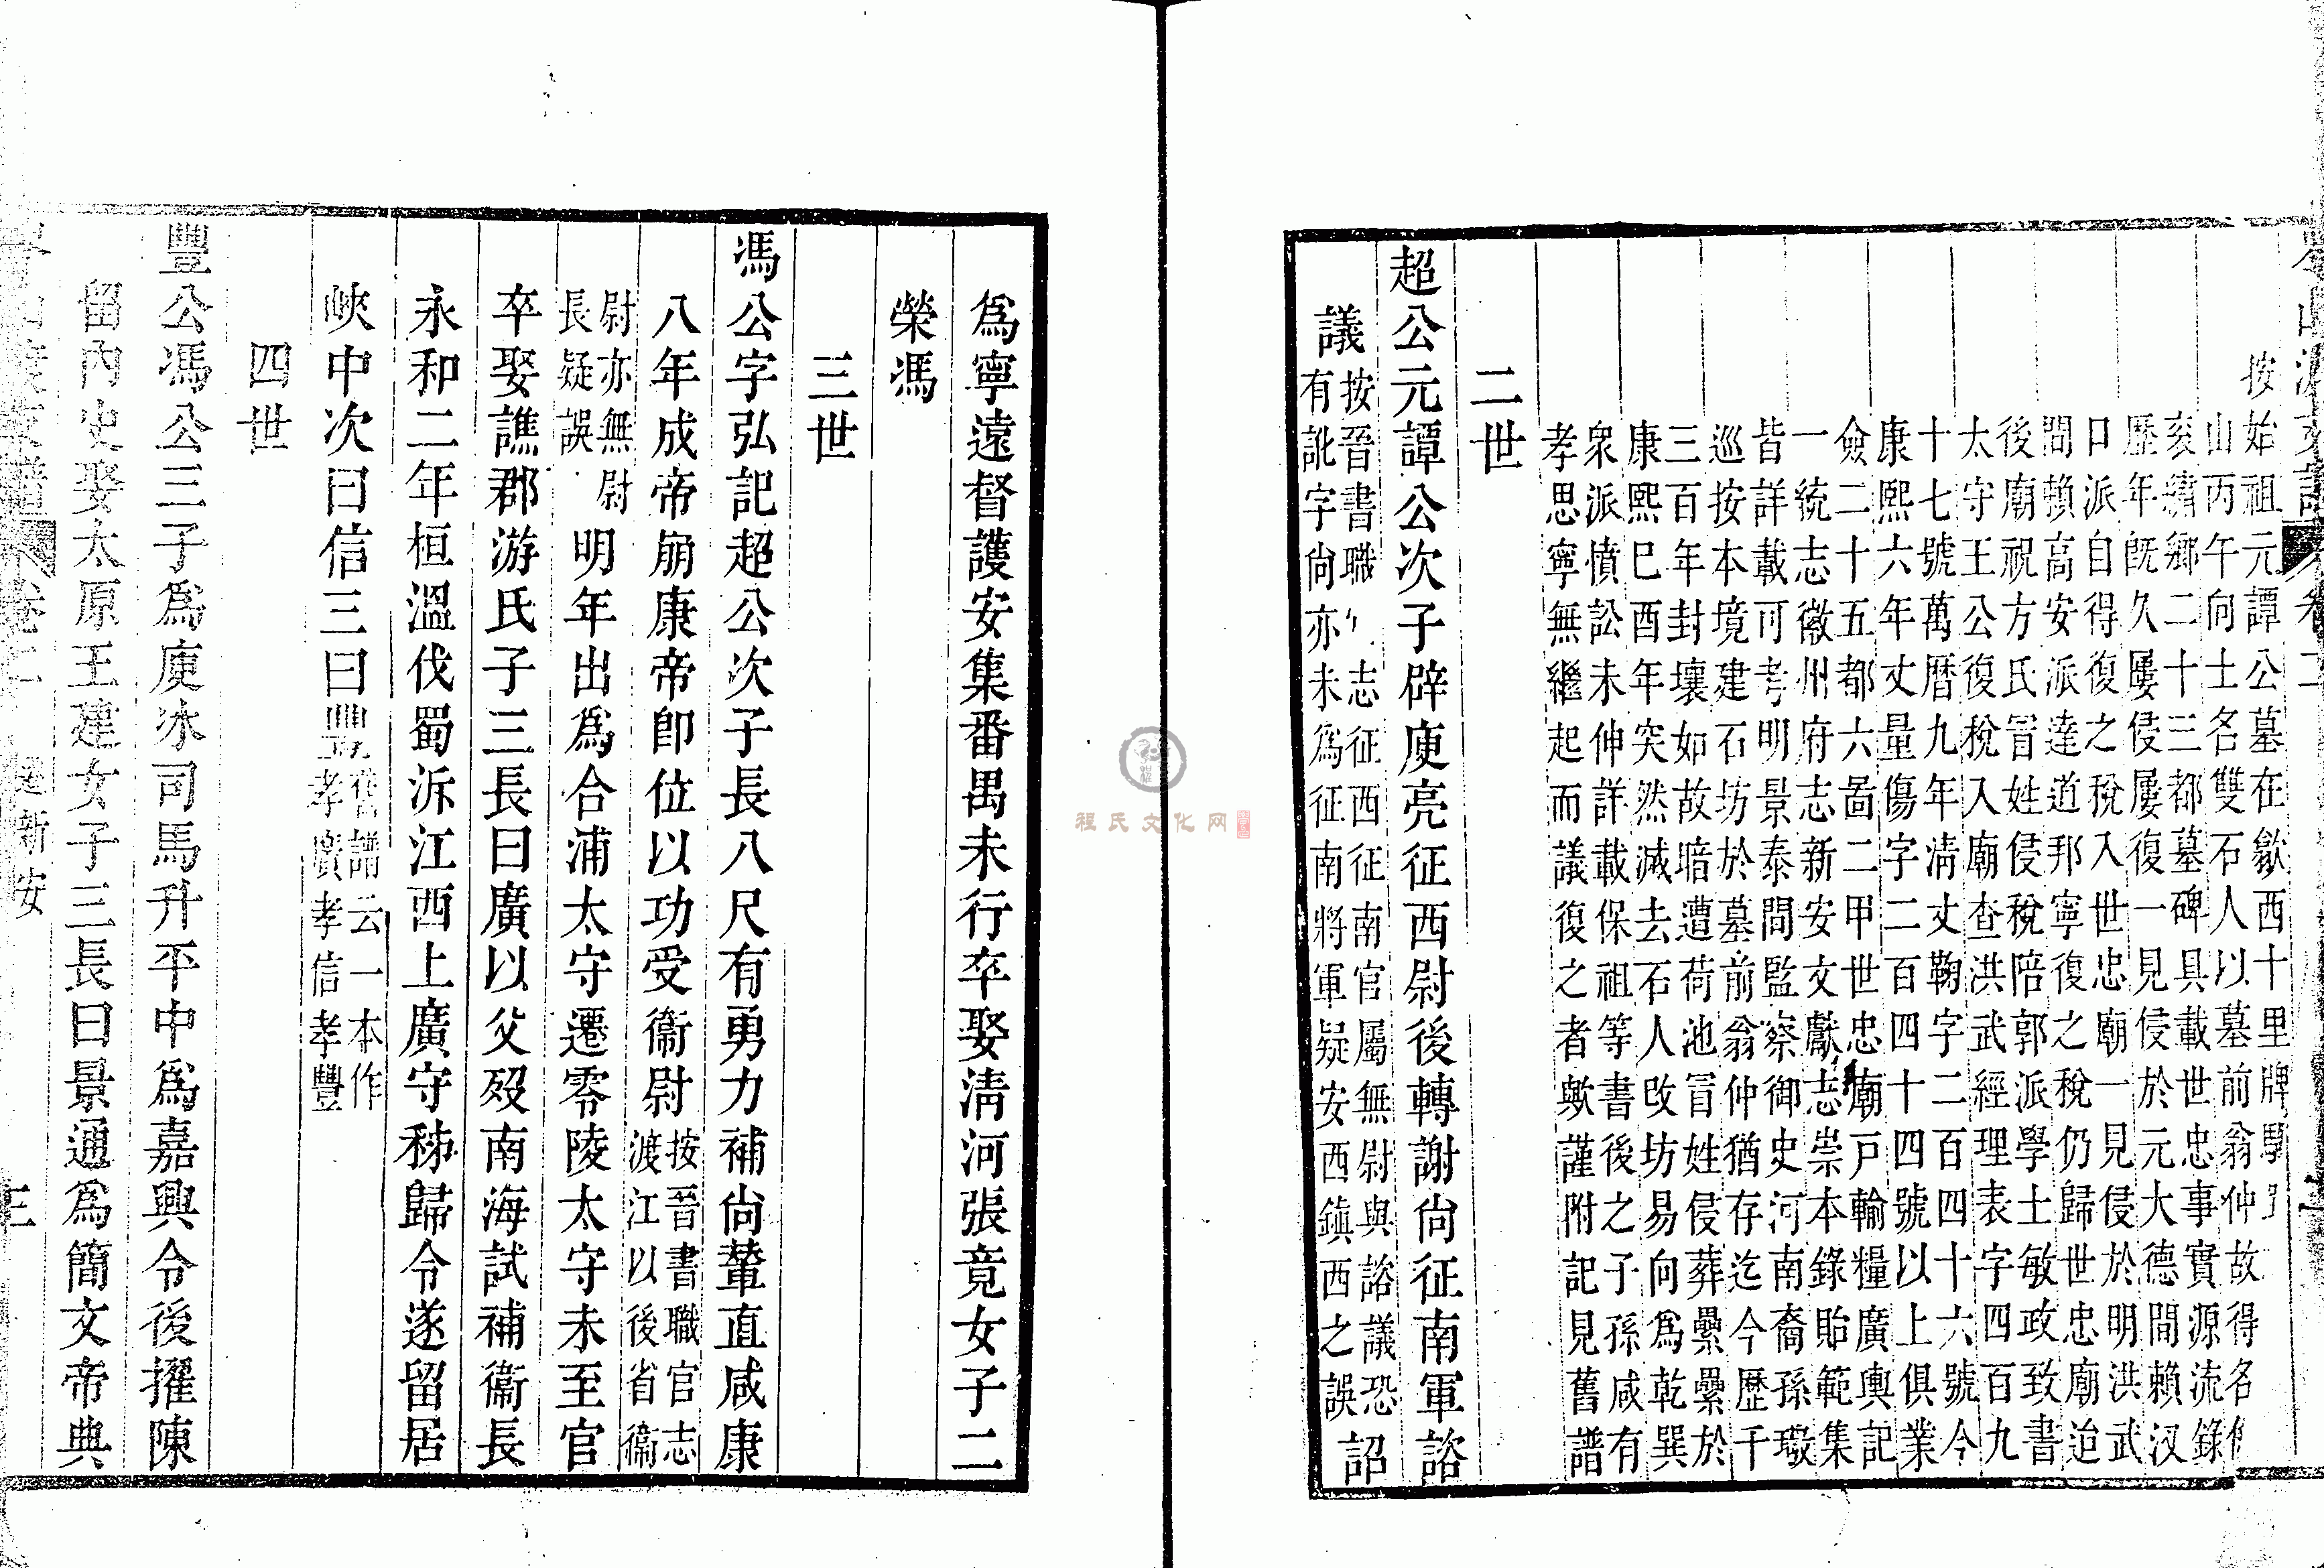 按始祖元譚公墓在歙西十里牌
山丙午向土名雙石人以墓前翁仲故得名
亥繡鄉二十三都墓碑具載世忠事實源流錄
歷年既久屢侵屢復一見侵於元大德間賴汉
口派自得復之稅入世忠廟一見侵於明洪武
間賴高安派達道邦寧復之稅仍歸世忠廟迨
後廟祝方氏冒姓侵稅陪郭派學士敏政致書
太守王公復稅入廟查洪武經理表字四百九
十七號萬曆九年清丈鞠字二百四十六號今
康熙六年丈量傷字二百四十四號以上俱業
儉二十五都六啚二甲世忠廟戶輸糧廣輿記
一統志徽州府志新安文獻志崇本錄貽範集
皆詳載可考明景泰間監察御史河南裔孫璥
巡按本境建石坊於墓前翁仲猶存迄今歷千
三百年封壤如故暗遭荷池冒姓侵葬纍纍於
康熙巳酉年突然滅去石人改坊易向為乾巽
衆派憤訟未伸詳載保祖等書後之子孫咸有
孝思寧無繼起而議復之者歟謹附記見舊譜
二世
超公元譚公次子辟庾亮征西尉後轉謝尙征南軍諮
議按晉書職志征西征南官屬無尉與諮議恐
有訛字尙亦未為征南將軍疑安西鎮西之誤詔
為寧遠督護安集番禺未行卒娶淸河張竟女子二
榮馮
三世
馮公字弘記超公次子長八尺有勇力補尙輦直咸康
八年成帝崩康帝即位以功受衞尉按晉書職官志
渡江以後省衞
尉亦無尉
長疑誤明年出為合浦太守遷零陵太守未至官
卒娶譙郡游氏子三長曰廣以父歿南海試補衞長
永和二年桓溫伐蜀泝江西上廣守秭歸令遂留居
峽中次曰信三曰豐舊譜云一本作
孝廣孝信孝豐
四世
豐公馮公三子為庾冰司馬升平中為嘉興令後擢陳
留內史娶太原王建女子三長曰景通為簡文帝典
卷二
新安
三
程氏文化网